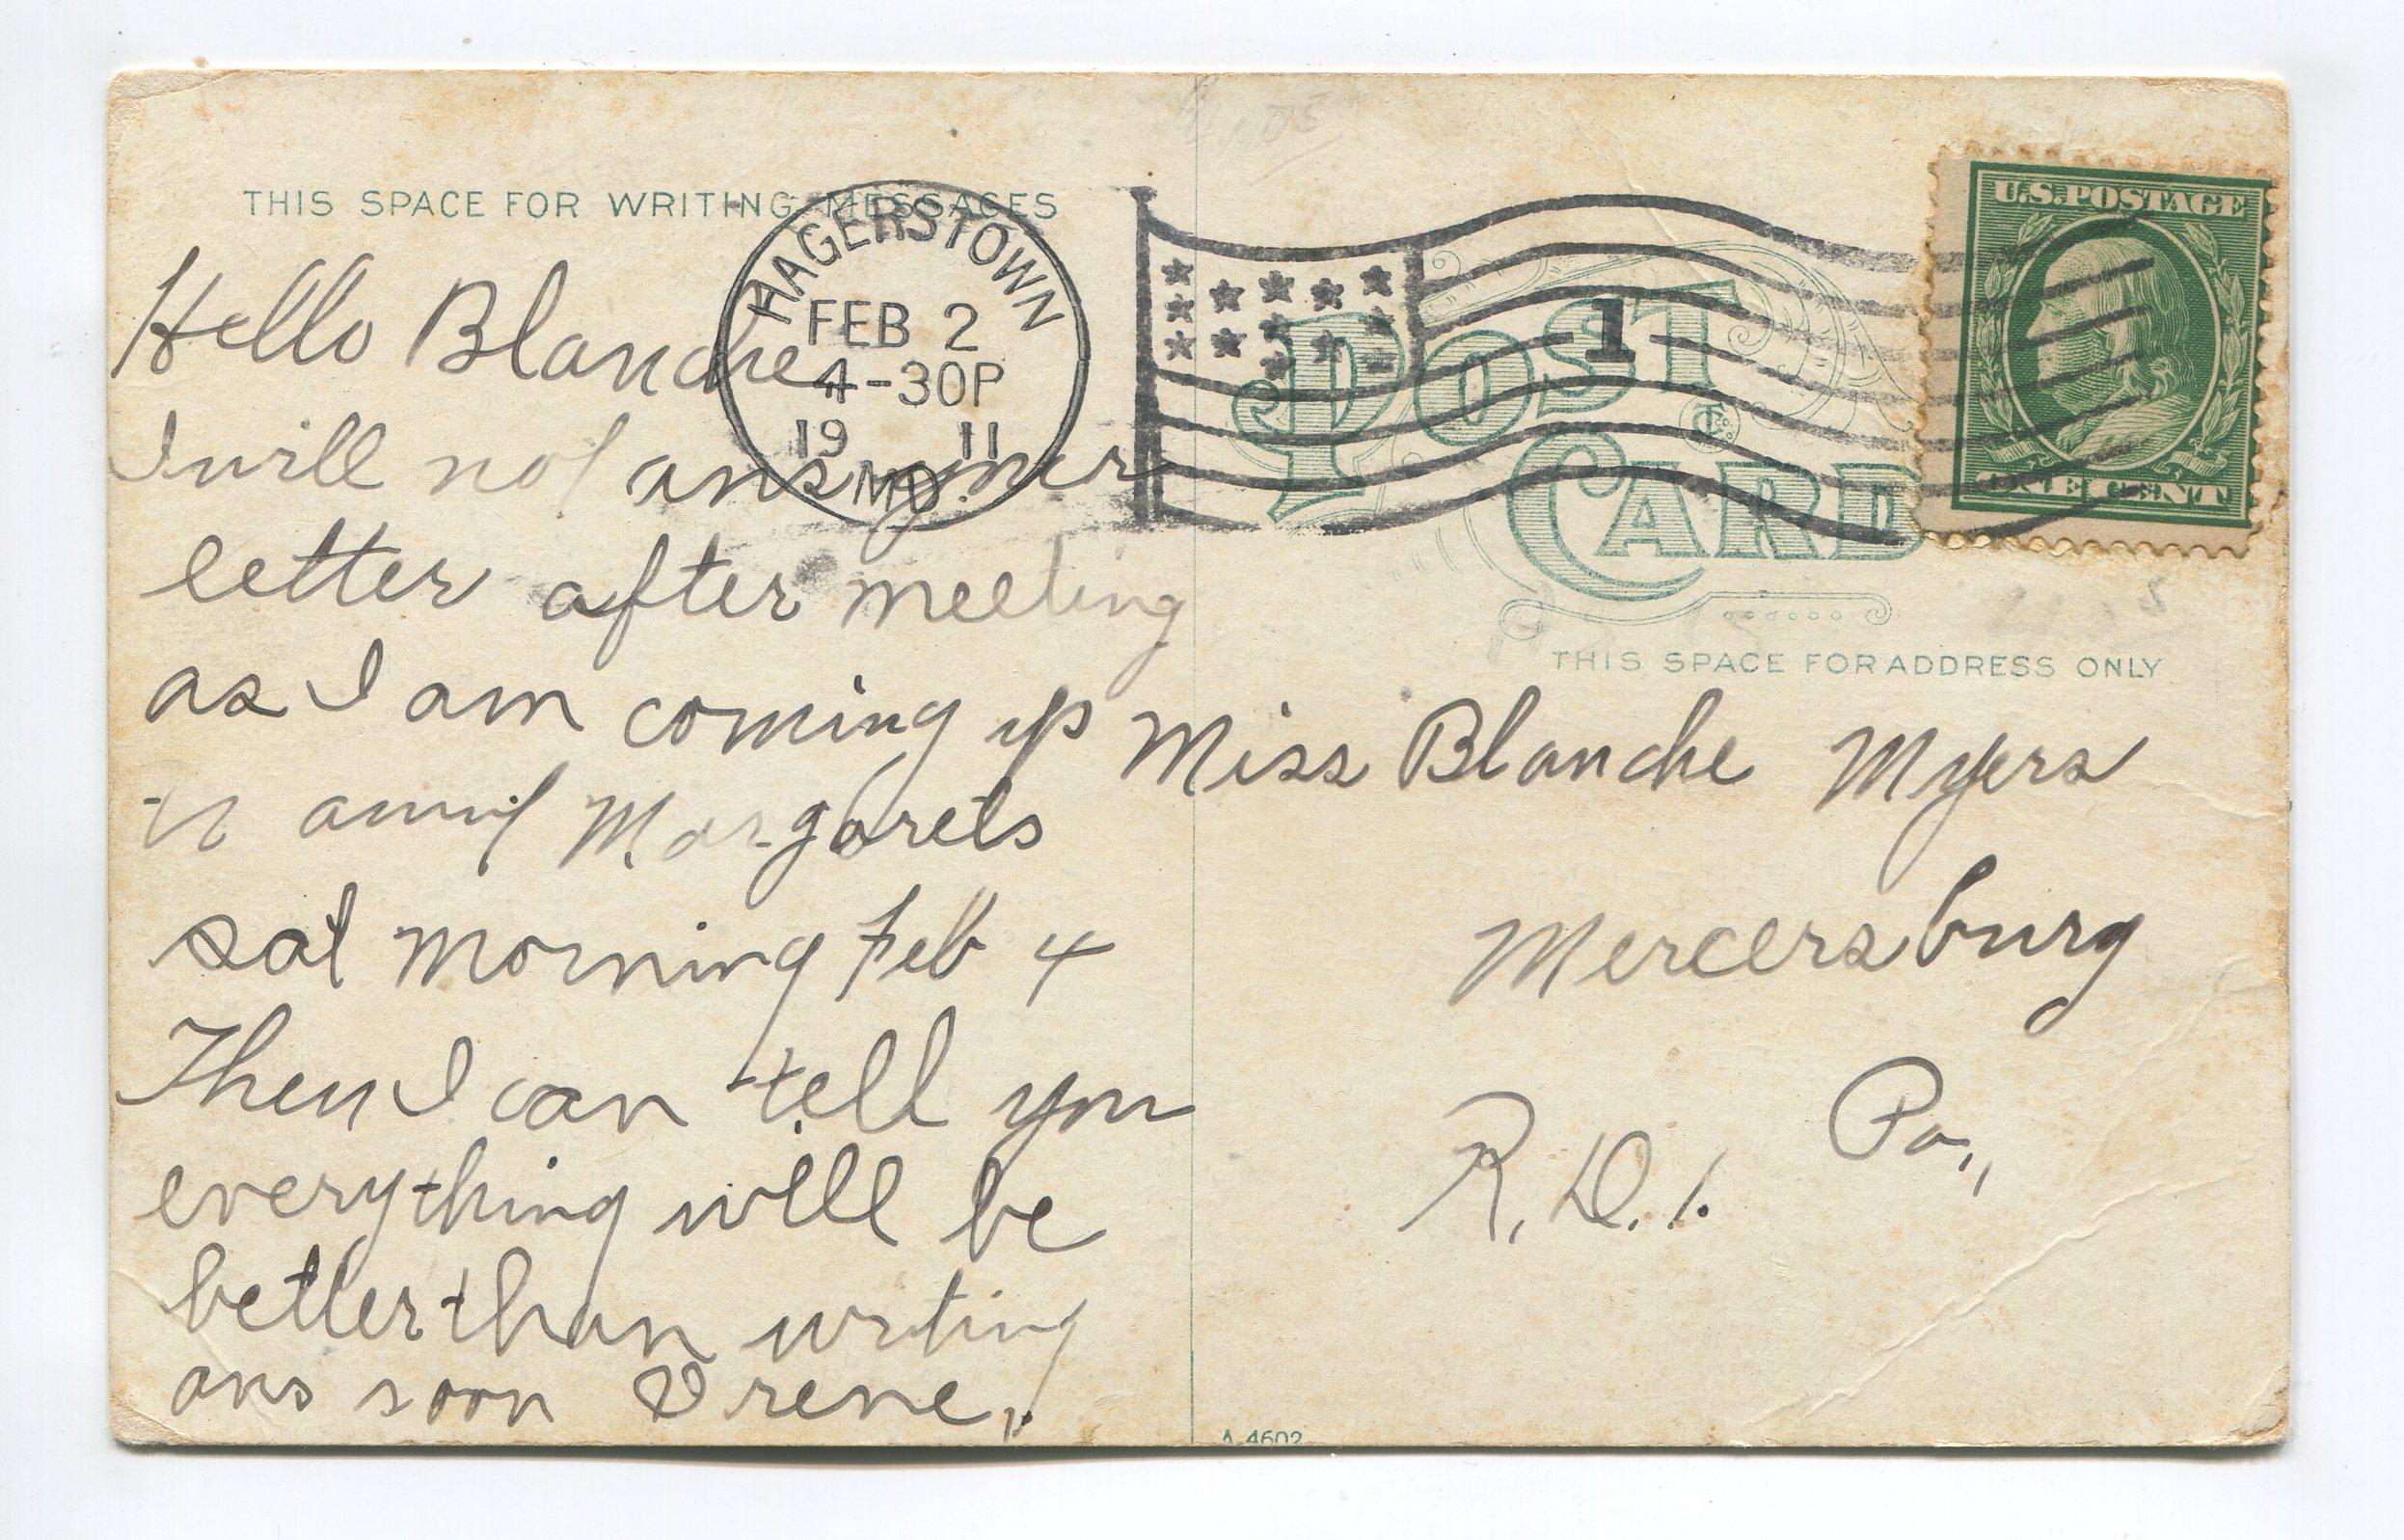 THIS SPACE FOR WRITING MESSAGES
Hello Blanche
I will not ans your
letter after meeting
as I am coming up
to Margarets
sat morning Feb 4
Then I can tell you
everything will be
better than writing
ans soon Irene,
HAGERSTOWN
FEB 2
4-30P
19 11
MD.
1
POST
CARD
U.S. POSTAGE
ONE CENT
THIS SPACE FOR ADDRESS ONLY
Miss Blanche Myers
Mercersburg
Pa,,
R. D. 1.
A-4602